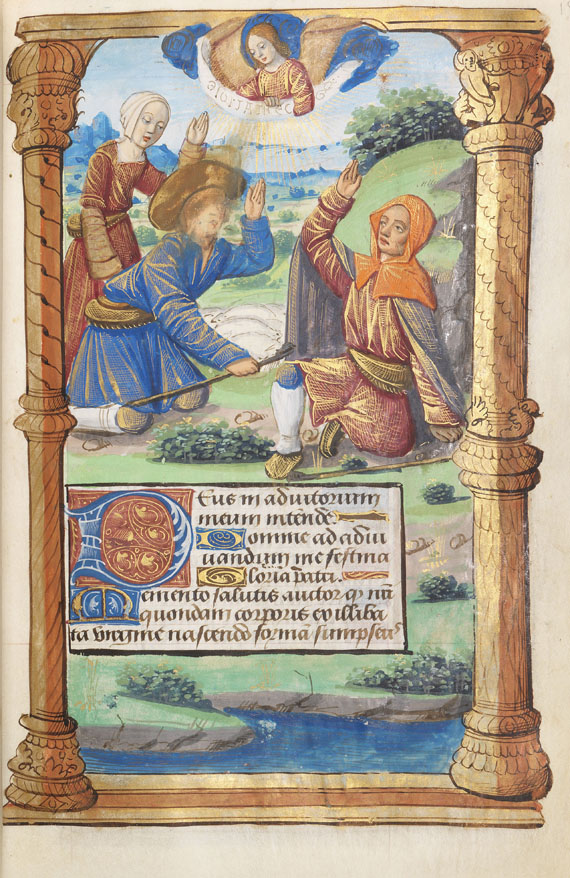 GLORIA IN EXC
Deus in adiutorium
meum intende.
Domine ad adiu
uandum me festina
Gloria patri.
Memento salutis auctor qȝ nr̄i
quondam corporis ex illiba
ta virgine nascendo formā sumpseris